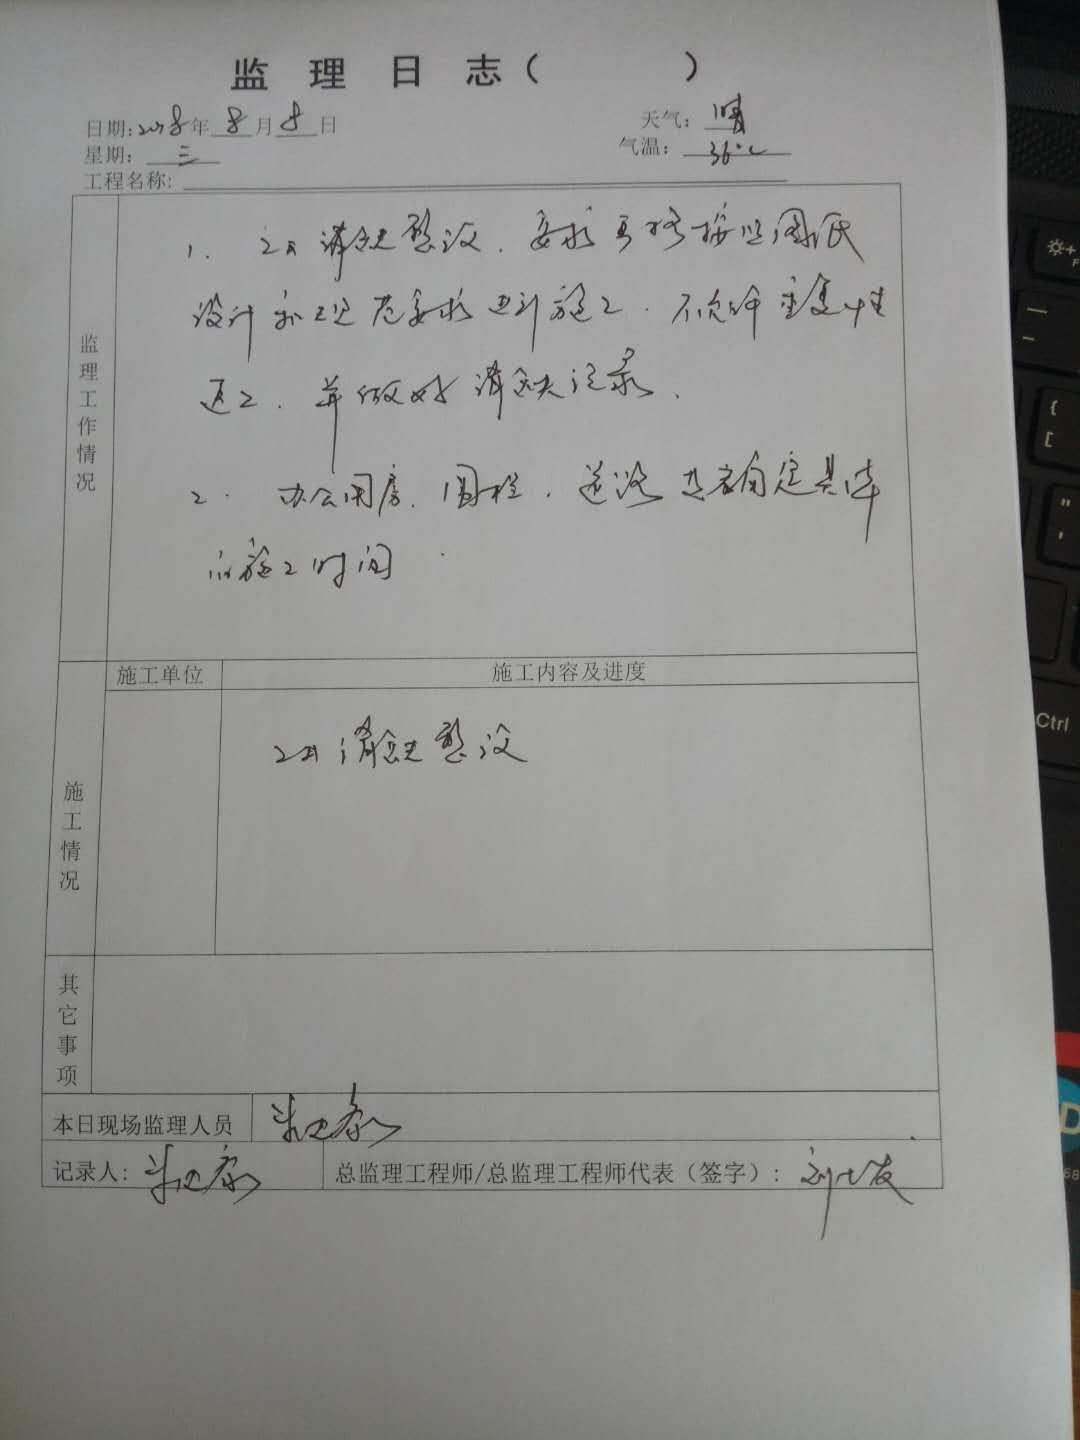 监 理 日 志（ ）
日期：2018年 8 月 8 日 天气： 晴
星期： 三 气温： 36℃
工程名称：
监理工作情况
1. 消缺整改，要求严格按照图纸
设计和规范要求进行施工，不允许重复性
返工，并做好消缺记录。
2. 办公用房、围栏、道路 确定具体
的施工时间
施工单位 施工内容及进度
施工情况
消缺整改
其它事项
本日现场监理人员
记录人： 总监理工程师/总监理工程师代表（签字）：
Ctrl